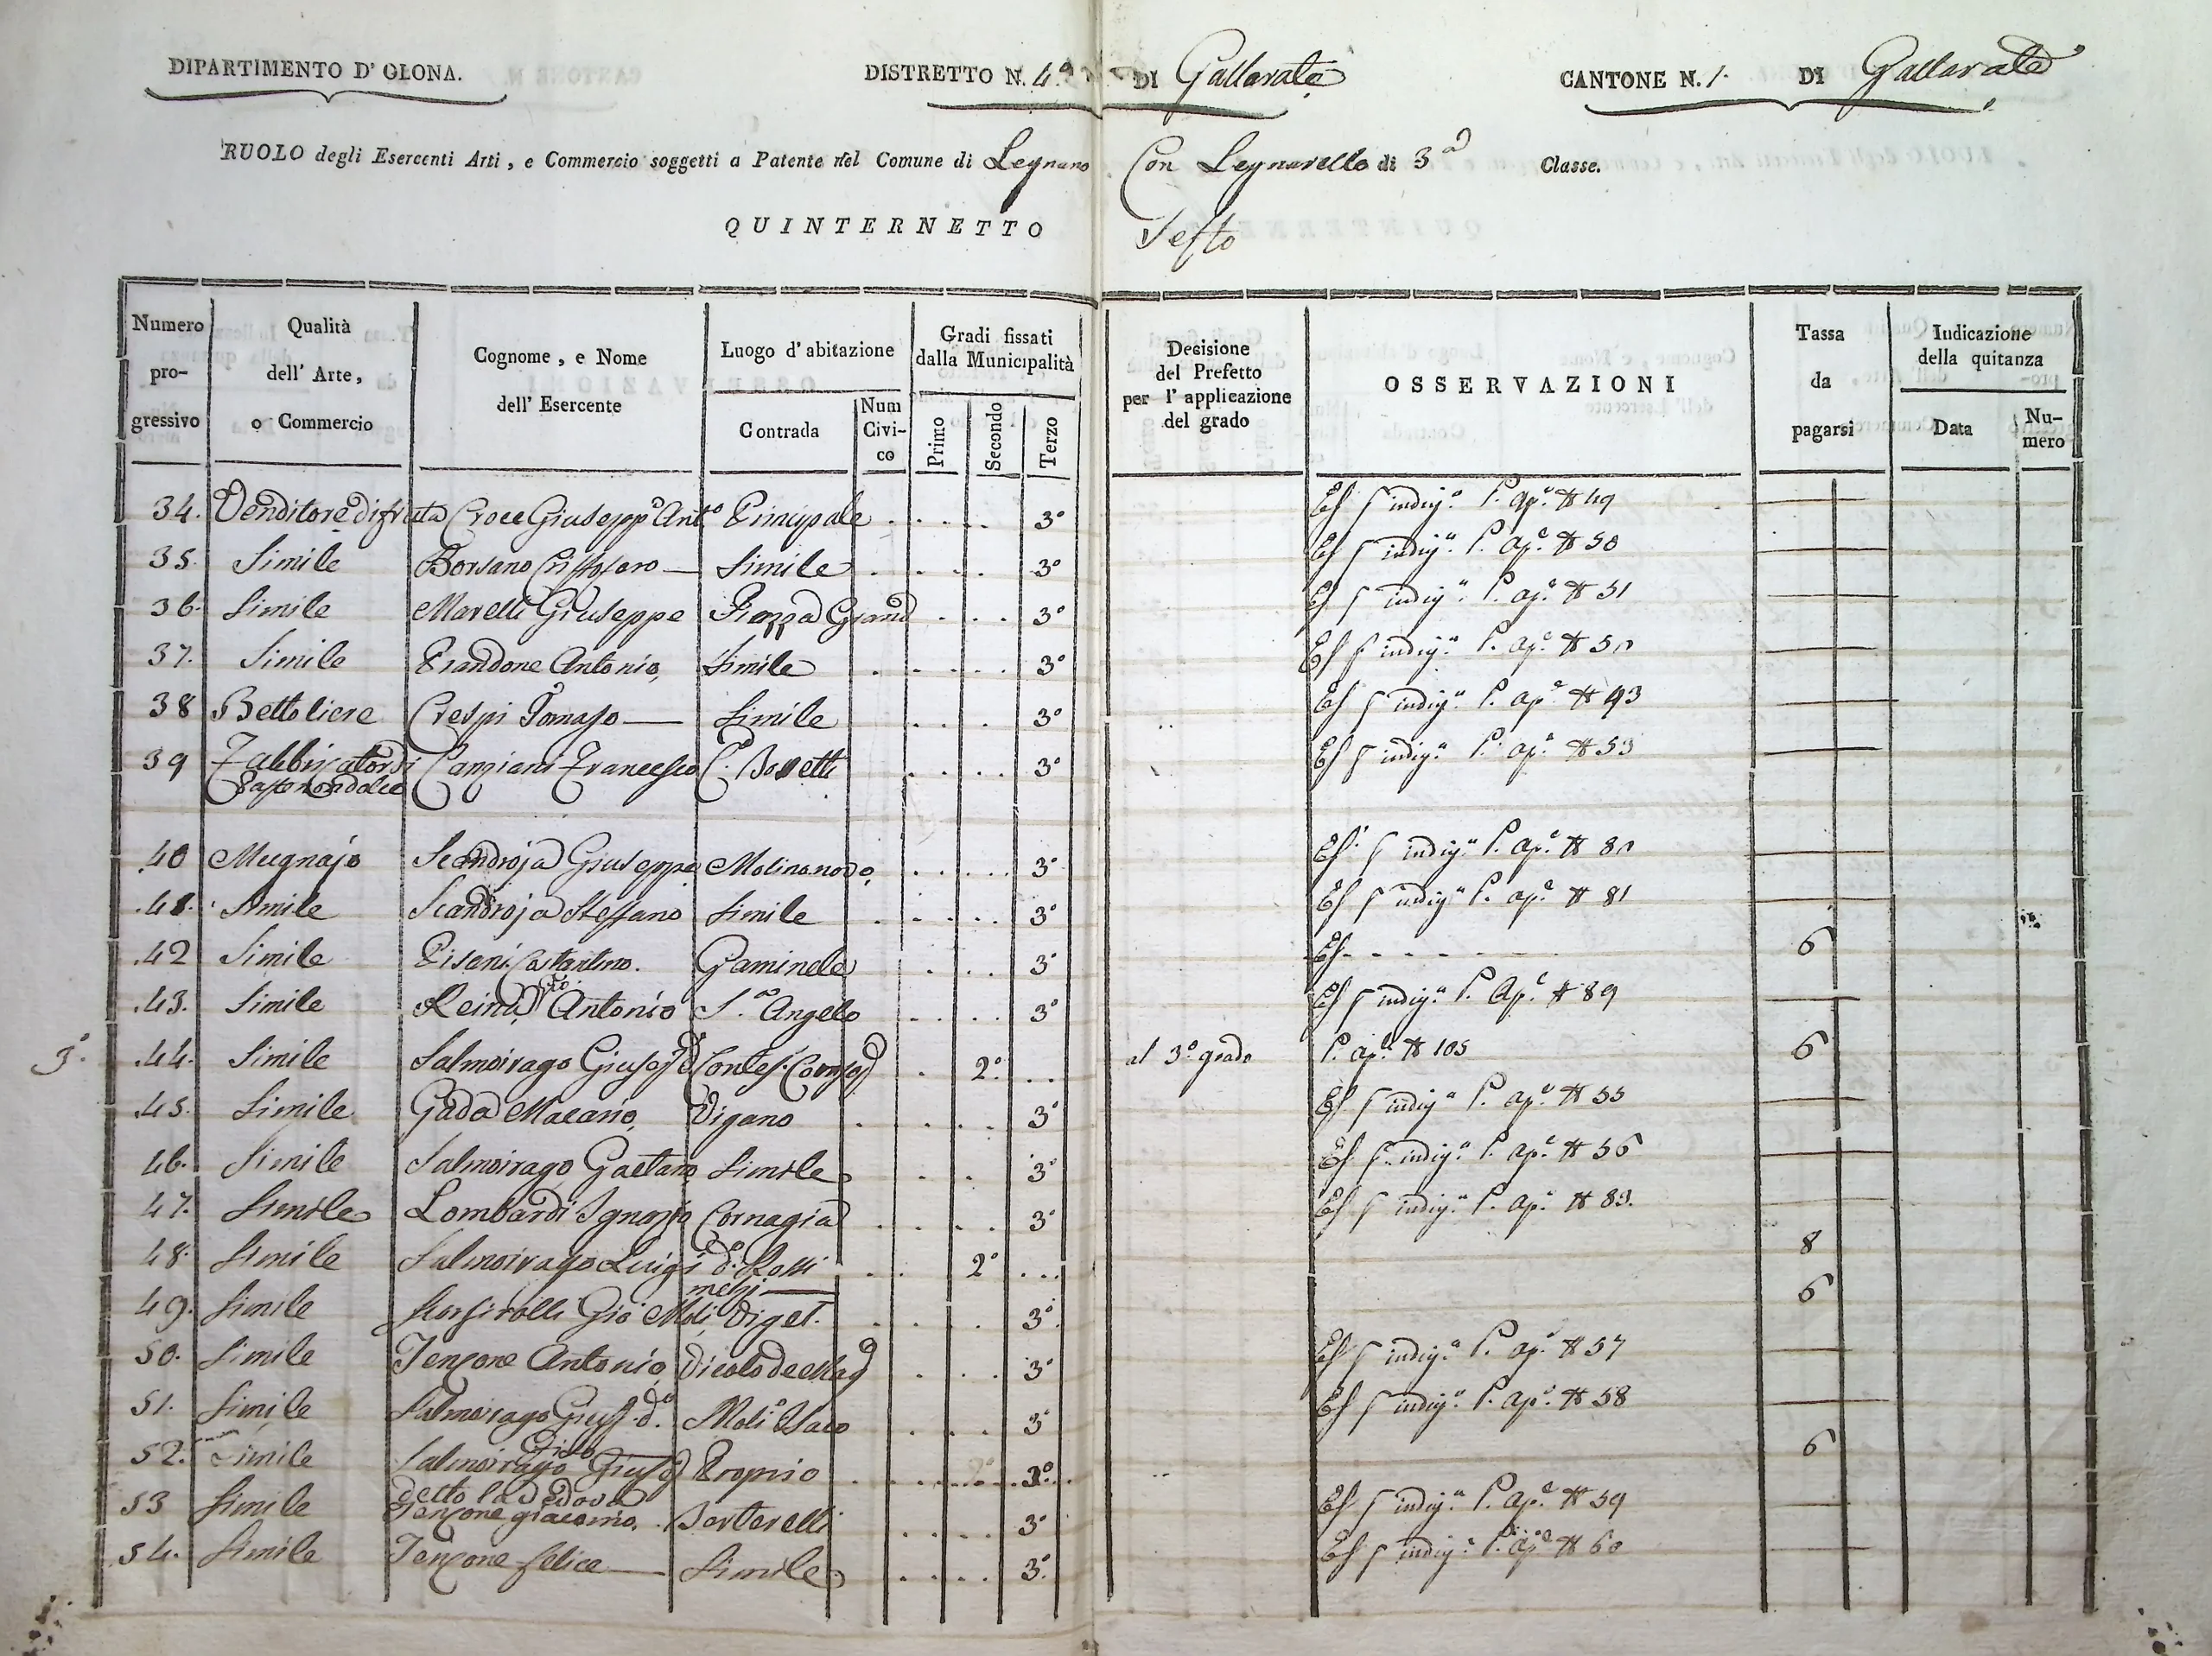 DIPARTIMENTO D' OLONA.
DISTRETTO N. 4.° DI Gallarate
CANTONE N. 1. DI Gallarate
RUOLO degli Esercenti Arti, e Commercio soggetti a Patente nel Comune di Legnano Con Legnarello di 3.a Classe.
QUINTERNETTO Sesto
Numero pro-gressivo
Qualità dell' Arte, o Commercio
Cognome, e Nome dell' Esercente
Luogo d' abitazione
Contrada
Num Civi-co
Gradi fissati dalla Municipalità
Primo
Secondo
Terzo
Decisione del Prefetto per l' applicazione del grado
OSSERVAZIONI
Tassa da pagarsi
Indicazione della quitanza
Data
Nu-mero
34. Venditore di fruta Croce Giusepp.e Ant.o Principale 3° Es. p indig.a P. ap.e # 49
35. Simile Borsano Cristoforo Simile 3° Es. p indig.a P. ap.e # 50
36. Simile Marelli Giuseppe Piazza Grand 3° Es. p indig.a P. ap.e # 51
37. Simile Prandone Antonio, Simile 3° Es. p indig.a P. ap.e #
38 Bettoliere Crespi Tomaso Simile 3° Es. p indig.a P. ap.e # 93
39 Fabbricator di Canziani Francesco C. 3° Es. p indig.a P. ap.e # 53
40 Mugnajo Scandroja Giuseppe Molino novo 3° Es. p indig.a P. ap.e #
41. Simile Scandroja Steffano Simile 3° Es. p indig.a P. ap.e # 81
42 Simile Pisani Costantino. Gaminele 3° Es. 6
43. Simile Reina Antonio S. Angelo 3° Es. p indig.a P. Ap.e # 89
3.° 44. Simile Salmoirago 2° al 3.° grado P. ap.e # 105 6
45. Simile Gada Macario, Vigano 3° Es. p indig.a P. ap.e # 55
46. Simile Salmoirago Gaetano Simile 3° Es. p indig.a P. ap.e # 56
47. Simile Lombardi Ignazio Cornagia 3° Es. p indig.a P. ap.e # 83.
48. Simile Salmoirago Luigi 2° 8
49. Simile Gio Moli 3° 6
50. Simile Tenzone Antonio, Vicolo de Mag 3° Es. p indig.a P. ap.e # 57
51. Simile Salmoirago Mol.o Isaco 3° Es. p indig.a P. ap.e # 58
52. Simile Salmoirago Proprio 3° 6
detto la Vedova
53 Simile Tenzone giacomo, 3° Es. p indig.a P. ap.e # 59
54. Simile Tenzone felice Simile 3° Es. p indig.a P. ap.e # 60